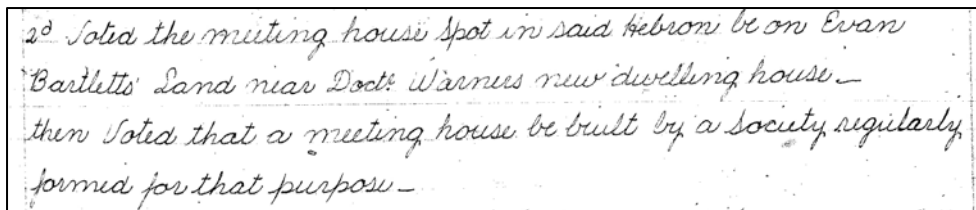 2d Voted the meeting house Spot in said Hebron be on Evan
Bartletts Land near Doctr Warners new dwelling house_
then Voted that a meeting house be built by a Society regularly
formed for that purpose_